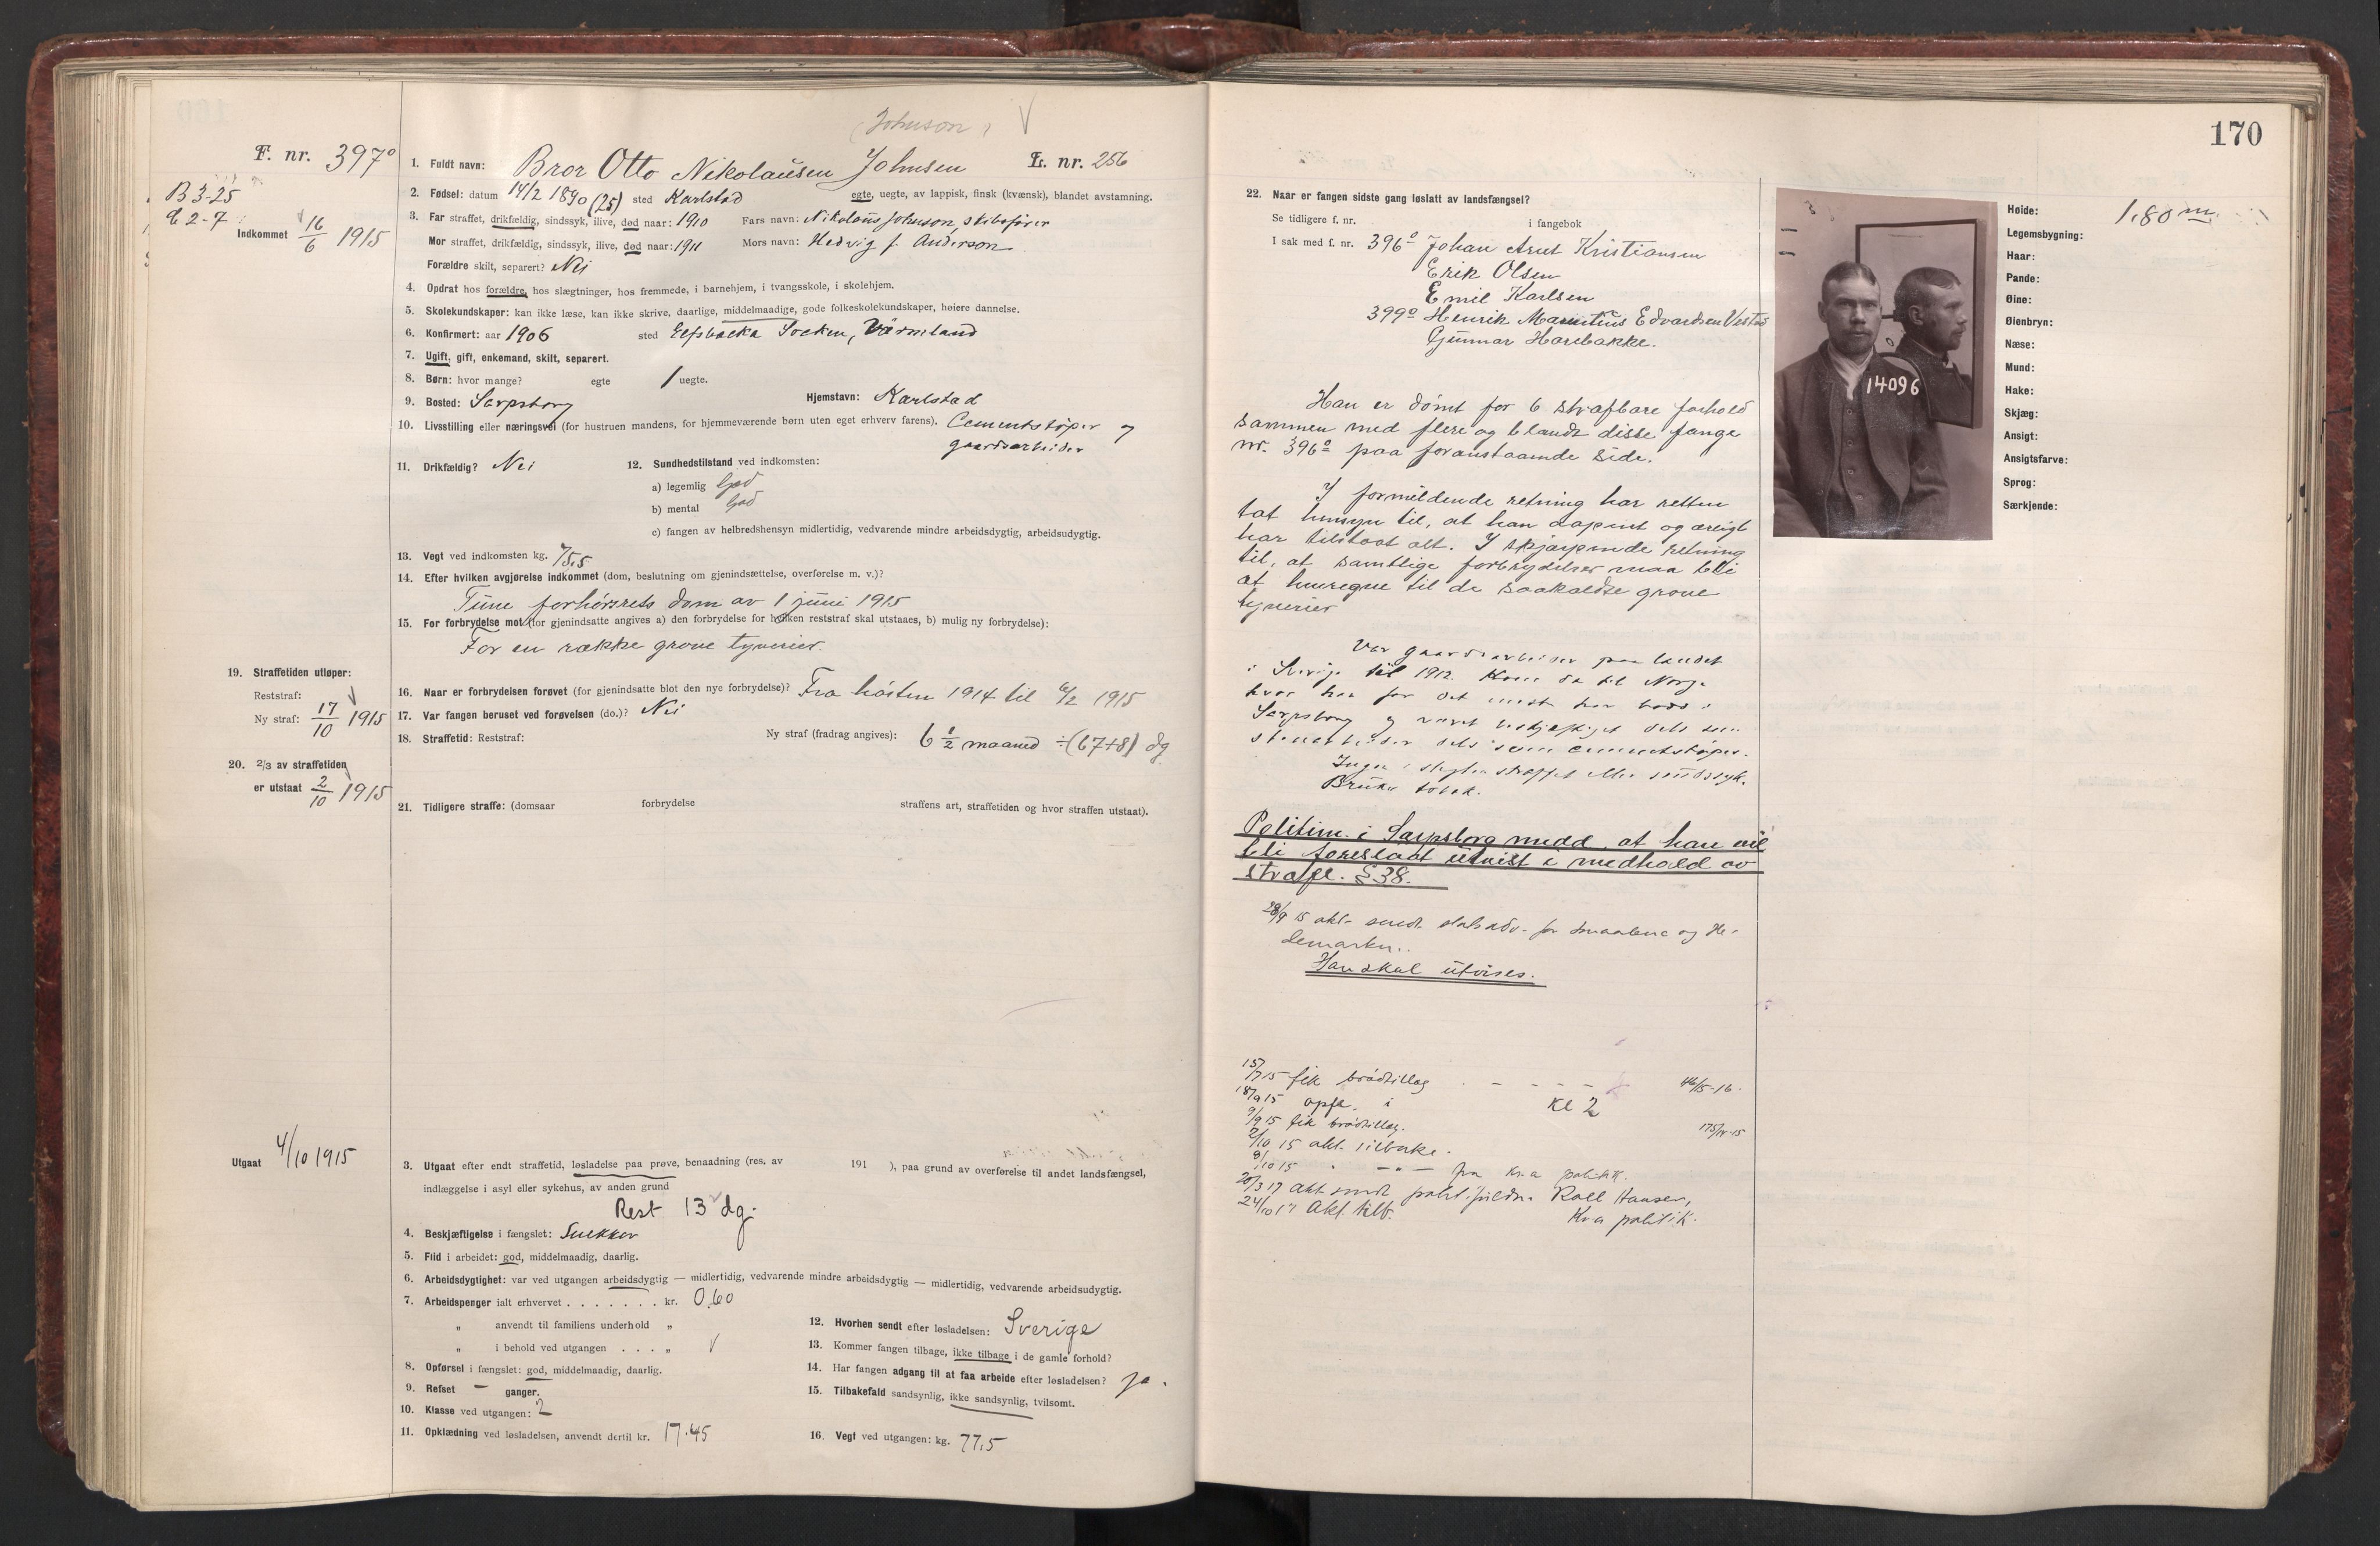 (Johnson) V
F. nr. 397º
B 3-25
C 2-7
Indkommet 16/6 1915
1. Fuldt navn: Bror Otto Nikolausen Johnsen L. nr. 256
2. Fødsel: datum 14/2 1890 (25) sted Karlstad egte, uegte, av lappisk, finsk (kvænsk), blandet avstamning.
3. Far straffet, drikfældig, sindssyk, ilive, død naar: 1910 Fars navn: Nikolaus Johnson, skibsfører
Mor straffet, drikfældig, sindssyk, ilive, død naar: 1911 Mors navn: Hedvig f. Anderson
Forældre skilt, separert? Nei
4. Opdrat hos forældre, hos slægtninger, hos fremmede, i barnehjem, i tvangsskole, i skolehjem.
5. Skolekundskaper: kan ikke læse, kan ikke skrive, daarlige, middelmaadige, gode folkeskolekundskaper, høiere dannelse.
6. Konfirmert: aar 1906 sted Elfsbacka Socken, Värmland
7. Ugift, gift, enkemand, skilt, separert.
8. Børn: hvor mange? egte 1 uegte.
9. Bosted: Sarpsborg Hjemstavn: Karlstad
10. Livsstilling eller næringsvei (for hustruen mandens, for hjemmeværende børn uten eget erhverv farens). Cementstøper og
gaardsarbeider
11. Drikfældig? Nei 12. Sundhedstilstand ved indkomsten:
a) legemlig God
b) mental God
c) fangen av helbredshensyn midlertidig, vedvarende mindre arbeidsdygtig, arbeidsudygtig.
13. Vegt ved indkomsten kg. 75,5
14. Efter hvilken avgjørelse indkommet (dom, beslutning om gjenindsættelse, overførelse m. v.)?
Tune forhørsrets dom av 1 juni 1915
15. For forbrydelse mot (for gjenindsatte angives a) den forbrydelse for hvilken reststraf skal utstaaes, b) mulig ny forbrydelse):
For en række grove tyverier.
19. Straffetiden utløper:
Reststraf:
Ny straf: 17/10 1915
16. Naar er forbrydelsen forøvet (for gjenindsatte blot den nye forbrydelse)? Fra høsten 1914 til 6/2 1915
17. Var fangen beruset ved forøvelsen (do.)? Nei
18. Straffetid: Reststraf: Ny straf (fradrag angives): 6 1/2 maaned ÷ (67+8) dg
20. 2/3 av straffetiden
er utstaat 2/10 1915
21. Tidligere straffe: (domsaar forbrydelse straffens art, straffetiden og hvor straffen utstaat).
Utgaat 4/10 1915
3. Utgaat efter endt straffetid, løsladelse paa prøve, benaadning (res. av 191 ), paa grund av overførelse til andet landsfængsel,
indlæggelse i asyl eller sykehus, av anden grund
Rest 13 dg.
4. Beskjæftigelse i fængslet: Snekker
5. Flid i arbeidet: god, middelmaadig, daarlig.
6. Arbeidsdygtighet: var ved utgangen arbeidsdygtig — midlertidig, vedvarende mindre arbeidsdygtig — midlertidig, vedvarende arbeidsudygtig.
7. Arbeidspenger ialt erhvervet . . . . . . . kr. 0,60
" anvendt til familiens underhold "
" i behold ved utgangen . . . "
8. Opførsel i fængslet: god, middelmaadig, daarlig.
9. Refset — ganger.
10. Klasse ved utgangen: 2
11. Opklædning ved løsladelsen, anvendt dertil kr. 17.45
12. Hvorhen sendt efter løsladelsen: Sverige
13. Kommer fangen tilbage, ikke tilbage i de gamle forhold?
14. Har fangen adgang til at faa arbeide efter løsladelsen? Ja.
15. Tilbakefald sandsynlig, ikke sandsynlig, tvilsomt.
16. Vegt ved utgangen: kg. 77,5
170
22. Naar er fangen sidste gang løslatt av landsfængsel?
Se tidligere f. nr. i fangebok
I sak med f. nr. 396º Johan Arnt Kristiansen
Erik Olsen
Emil Karlsen
399º Henrik Marentius Edvardsen Vestad
Gunnar Harebakke.
Han er dømt for 6 strafbare forhold
sammen med flere og blandt disse fange
nr. 396º paa foranstaaende side.
I formildende retning har retten
tat hensyn til, at han aapent og ærligt
har tilstaat alt. I skjærpende retning
til, at samtlige forbrydelser maa bli
at henregne til de saakaldte grove
tyverier
Var gaardsarbeider paa landet
i Sverige til 1912. Kom da til Norge
hvor han for det meste har bodd i
Sarpsborg og været beskjæftiget dels som
stenarbeider dels som cementstøper.
Ingen i slegten straffet eller sindssyk.
Bruker tobak.
Politim. i Sarpsborg medd. at han vil
bli foreslaat utvist i medhold av
strafl. § 38.
28/9 15 akt. sendt statsadv. for Smaalene og He-
demarken.
Han skal utvises.
15/7 15 fik brødtillæg - - - - 46/15-16.
18/9 15 opfl. i Kl 2
9/9 15 fik brødtillæg. 175/14-15
2/10 15 akt. tilbake.
8/10 15 " — " — fra Kr.a politik.
20/3 17 Akt sendt politifuldm. Roll Hansen,
Kr.a politik.
24/10 17 Akt. tilb.
14096
Høide: 1,80 m.
Legemsbygning:
Haar:
Pande:
Øine:
Øienbryn:
Næse:
Mund:
Hake:
Skjæg:
Ansigt:
Ansigtsfarve:
Sprog:
Særkjende: